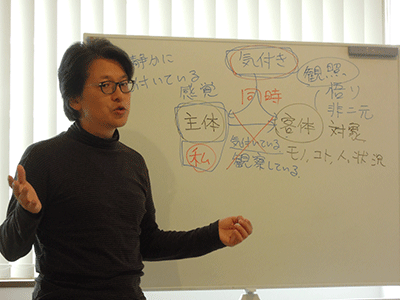 静かに
付いている
感覚
気付き
観照
悟り
非二元
同時
主体
客体
対象
私
気付いている
観察している
モノ、コト、人、状況